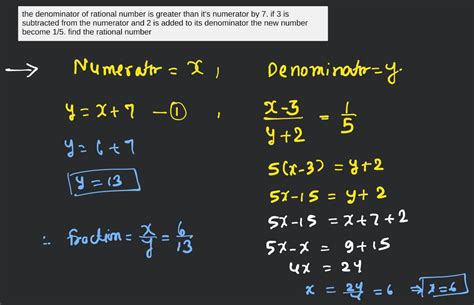 the denominator of rational number is greater than it's numerator by 7. if 3 is
subtracted from the numerator and 2 is added to its denominator the new number
become 1/5. find the rational number
→ Numerator = x, Denominator = y.
y = x + 7 — ①,
y = 6 + 7
y = 13
∴ fraction = x/y = 6/13
(x-3)/(y+2) = 1/5
5(x-3) = y+2
5x-15 = y+2
5x-15 = x+7+2
5x-x = 9+15
4x = 24
x = 24/4 = 6 ⇒ x=6